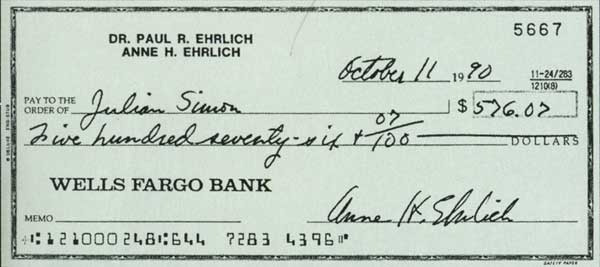 5667
DR. PAUL R. EHRLICH
ANNE H. EHRLICH
October 11 1990
11-24/283
1210(8)
PAY TO THE
ORDER OF Julian Simon $ 576.07
Five hundred seventy-six & 07/100 DOLLARS
WELLS FARGO BANK
MEMO Anne H. Ehrlich
⑆121000248⑆644 7283 4396⑈
SAFETY PAPER